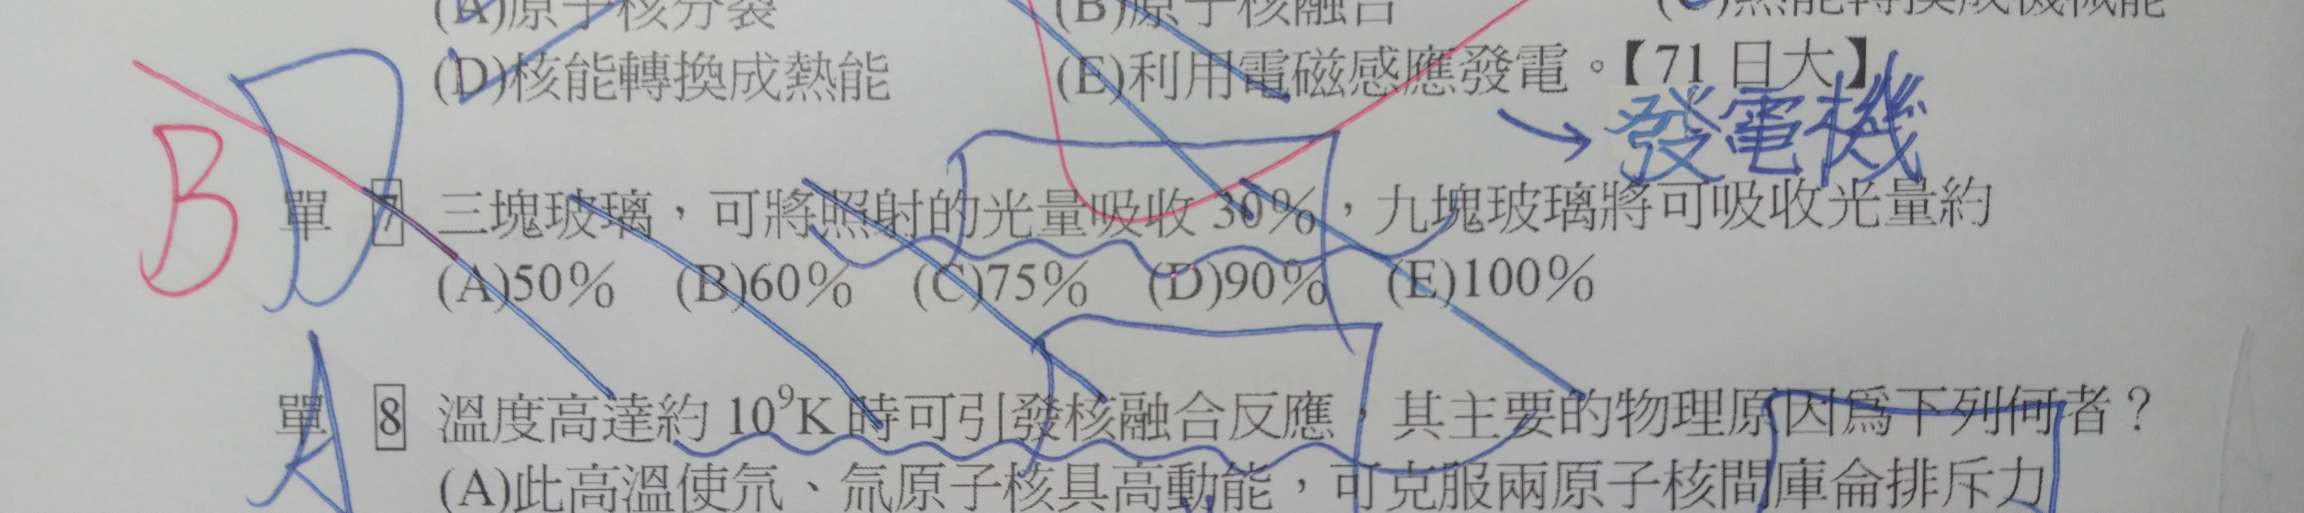 (A)原子核分裂 (B)原子核融合 (C)熱能轉換成機械能
(D)核能轉換成熱能 (E)利用電磁感應發電。【71 日大】
發電機
B D
單 7 三塊玻璃，可將照射的光量吸收 30%，九塊玻璃將可吸收光量約
(A)50% (B)60% (C)75% (D)90% (E)100%
A
單 8 溫度高達約 10⁹K 時可引發核融合反應，其主要的物理原因爲下列何者？
(A)此高溫使氘、氚原子核具高動能，可克服兩原子核間庫侖排斥力